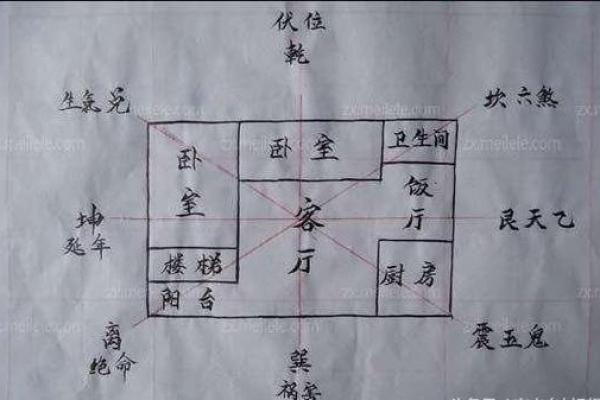 伏位
乾
生氣兑
坎六煞
卧室
卧室
卫生间
饭厅
坤
延年
客厅
艮天乙
楼梯
厨房
阳台
离
绝命
震五鬼
巽
祸害
zx.meilele.com
zx.meilele.com
zx.meilele.com
zx.meilele.com